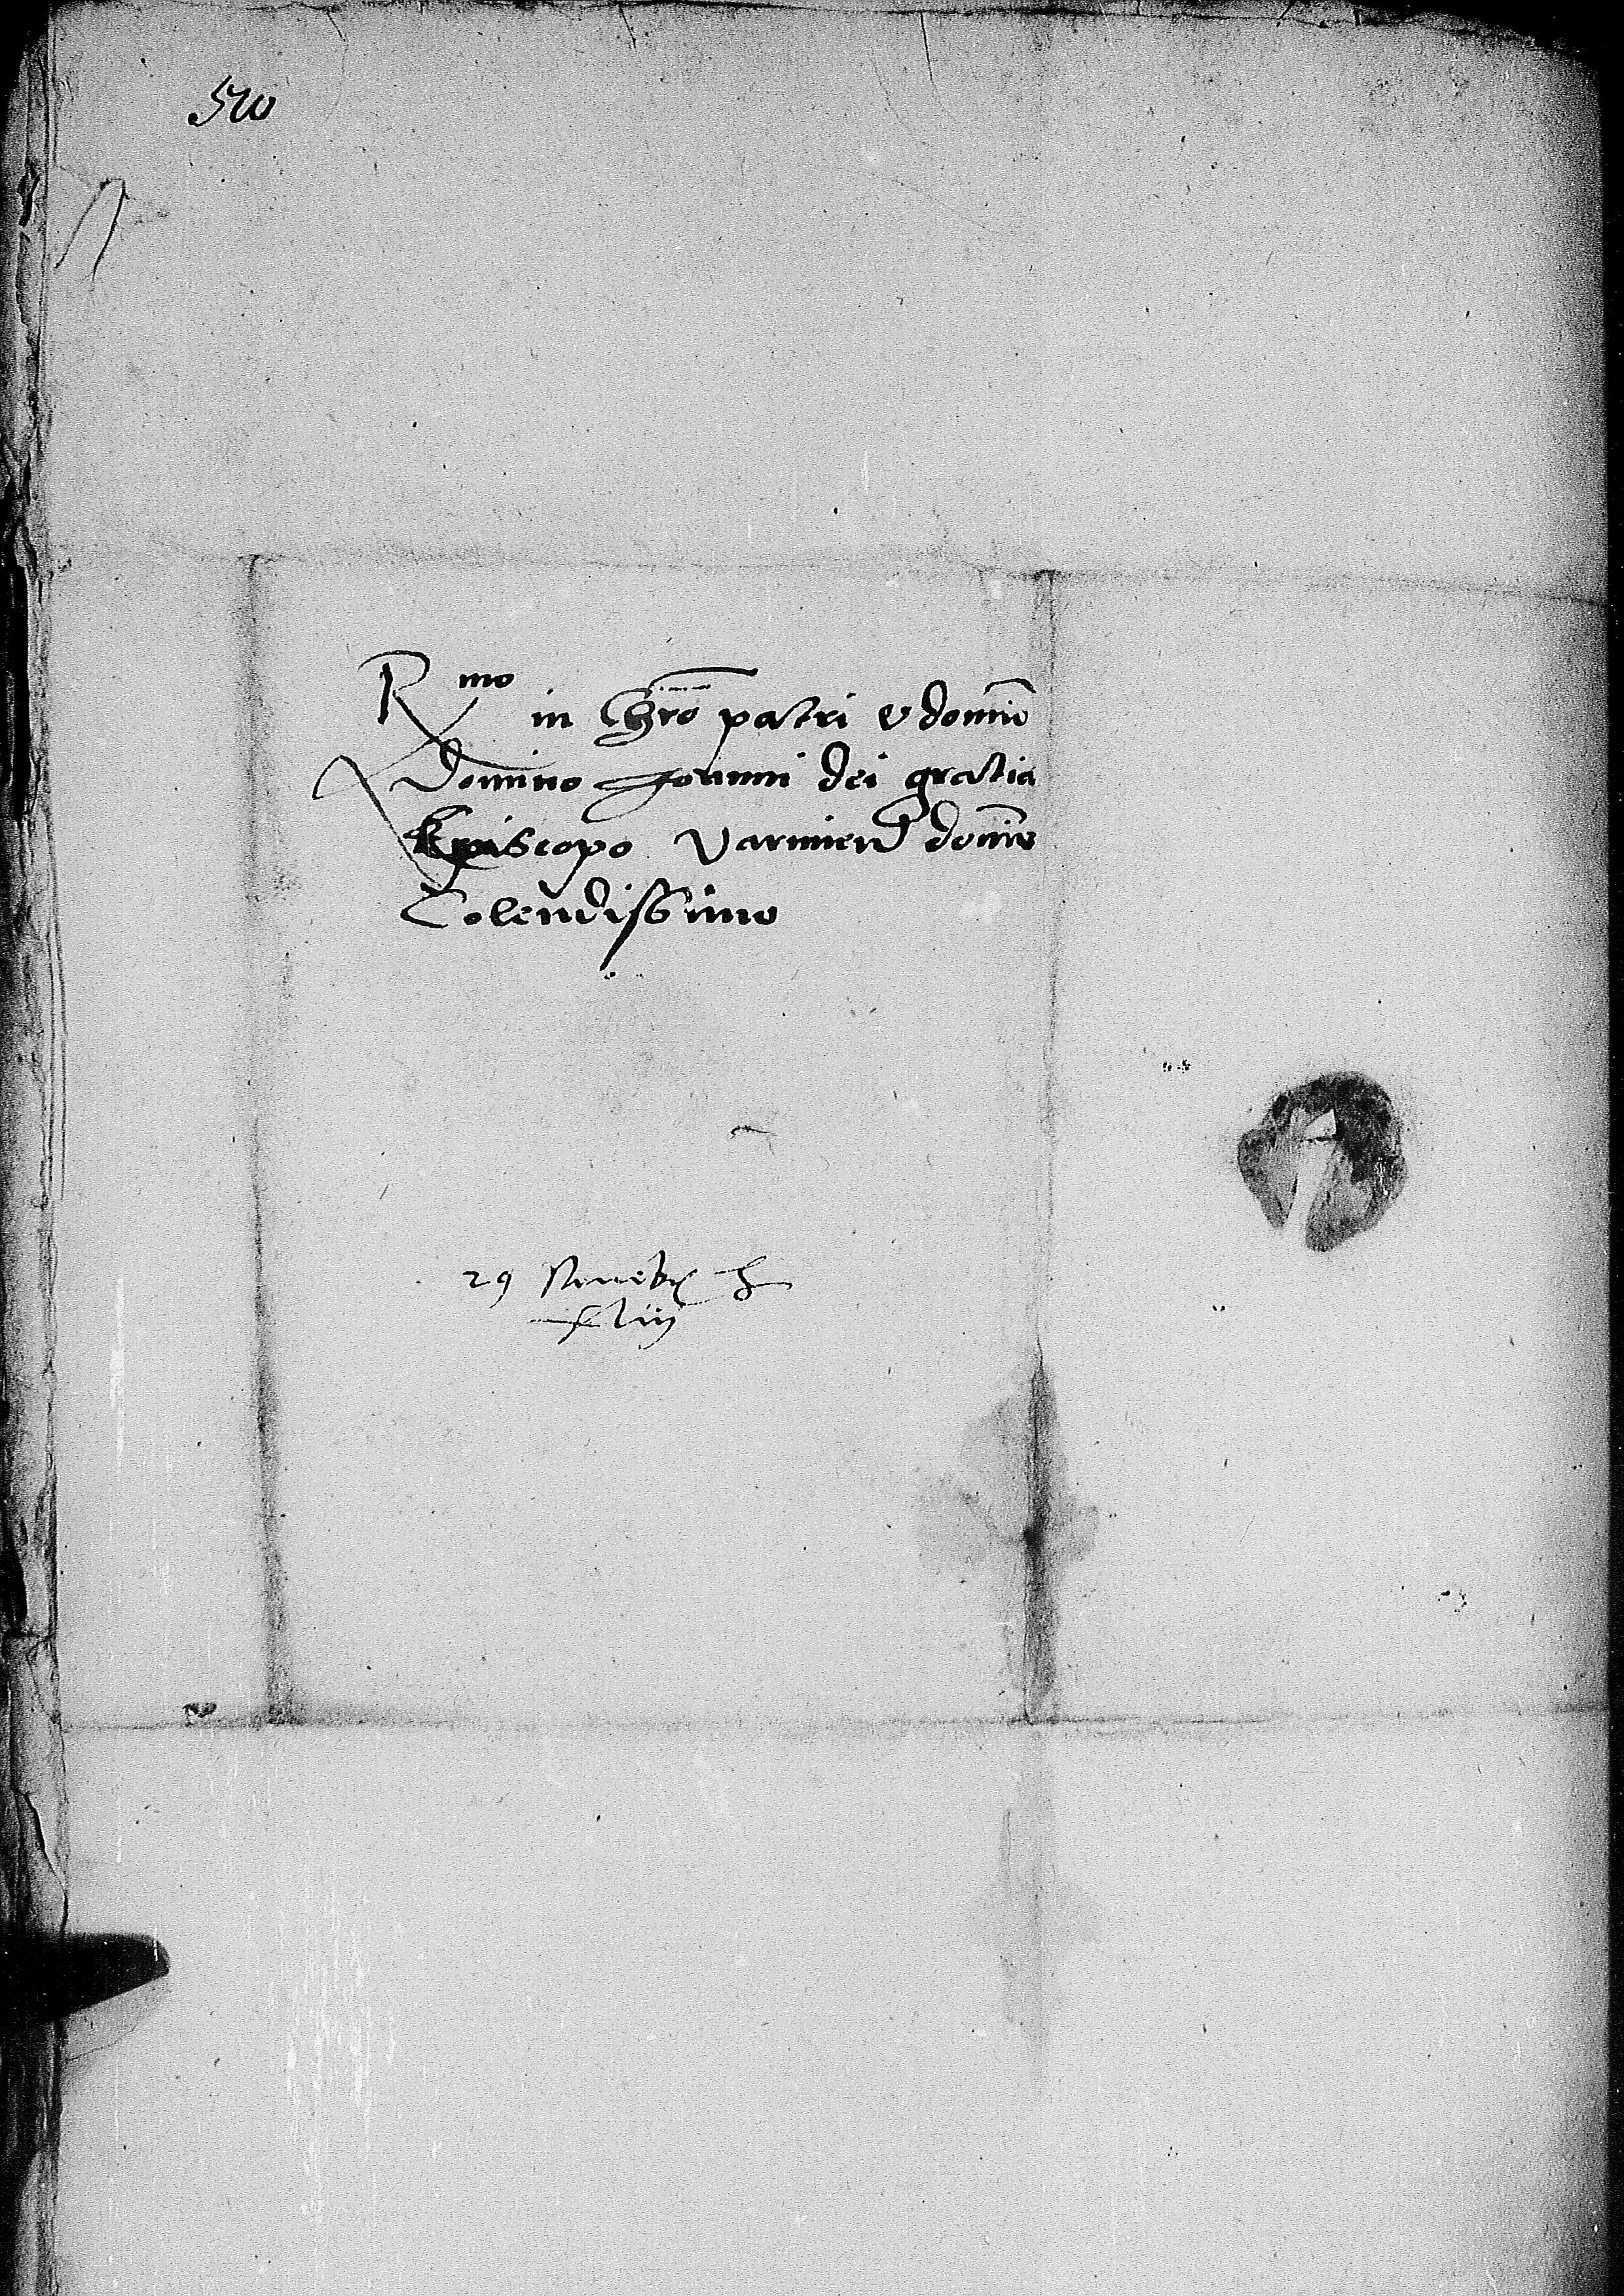 510
Rmo in Chro patri & domino
Domino Joanni dei gratia
Episcopo Varmien domino
Colendissimo
29 Novebr
xliij